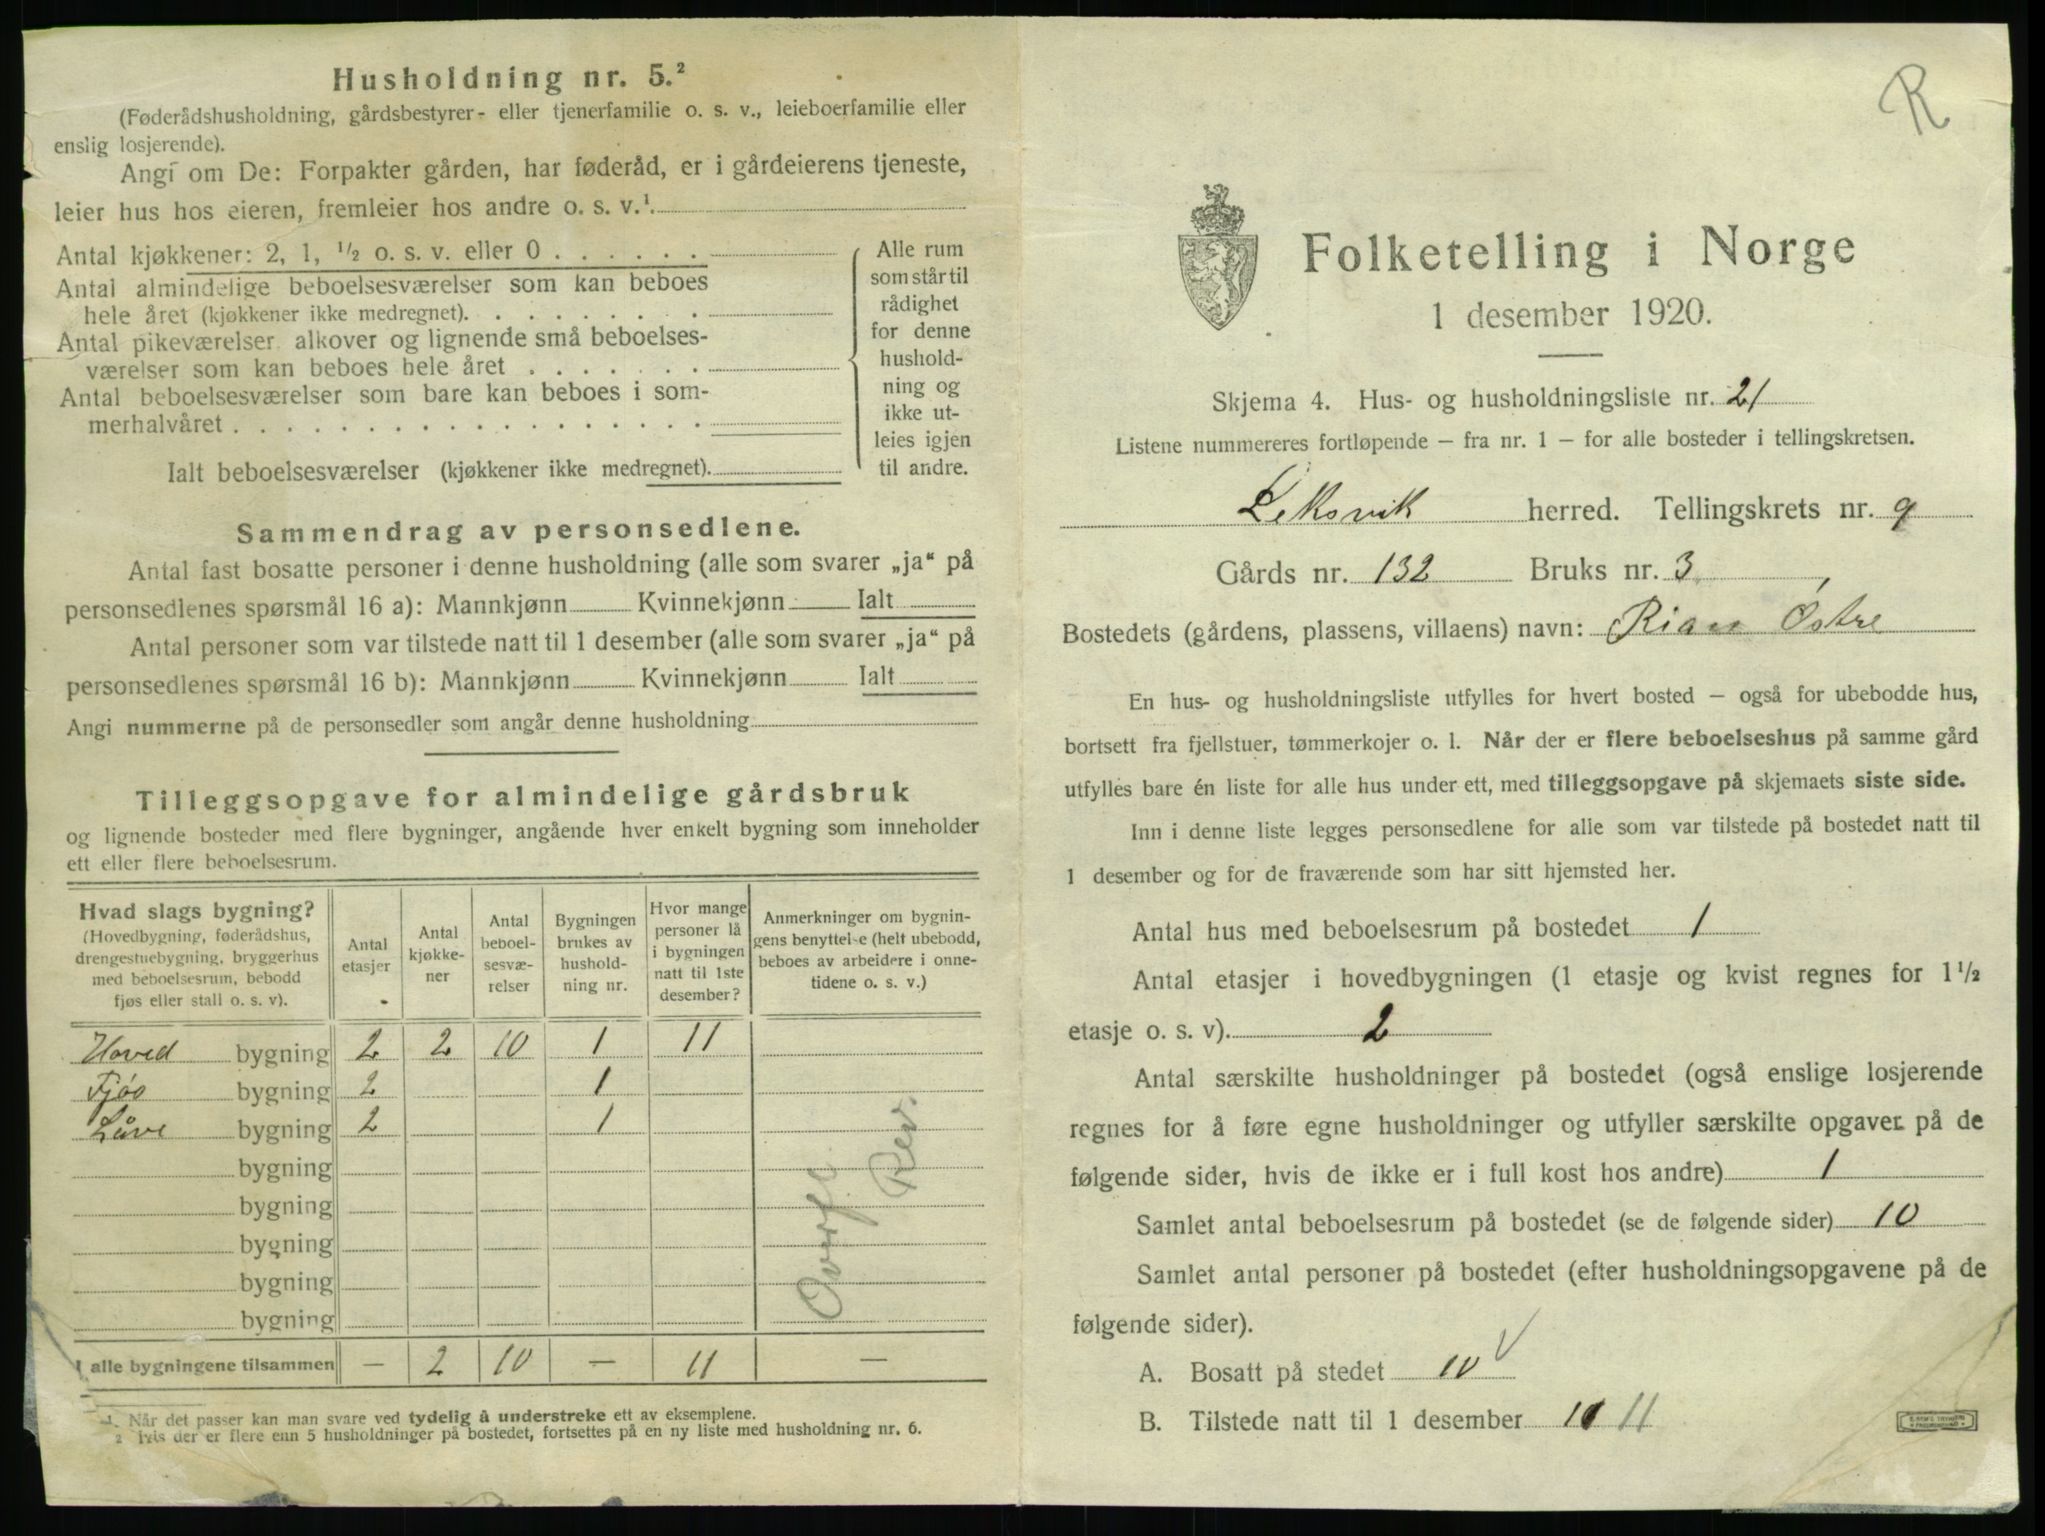 Husholdning nr. 5.²
(Føderådshusholdning, gårdsbestyrer- eller tjenerfamilie o. s. v., leieboerfamilie eller
enslig losjerende).
Angi om De: Forpakter gården, har føderåd, er i gårdeierens tjeneste,
leier hus hos eieren, fremleier hos andre o. s. v.¹.
Antal kjøkkener: 2, 1, ½ o. s. v. eller 0 . . . . . .
Antal almindelige beboelsesværelser som kan beboes
hele året (kjøkkener ikke medregnet). . . . . . . .
Antal pikeværelser, alkover og lignende små beboelses-
værelser som kan beboes hele året . . . . . . .
Antal beboelsesværelser som bare kan beboes i som-
merhalvåret . . . . . . . . . . . . . . . . .
Ialt beboelsesværelser (kjøkkener ikke medregnet).
Alle rum
som står til
rådighet
for denne
hushold-
ning og
ikke ut-
leies igjen
til andre.
Sammendrag av personsedlene.
Antal fast bosatte personer i denne husholdning (alle som svarer „ja“ på
personsedlenes spørsmål 16 a): Mannkjønn Kvinnekjønn Ialt
Antal personer som var tilstede natt til 1 desember (alle som svarer „ja“ på
personsedlenes spørsmål 16 b): Mannkjønn Kvinnekjønn Ialt
Angi nummerne på de personsedler som angår denne husholdning
Tilleggsopgave for almindelige gårdsbruk
og lignende bosteder med flere bygninger, angående hver enkelt bygning som inneholder
ett eller flere beboelsesrum.
Hvad slags bygning?
(Hovedbygning, føderådshus,
drengestuebygning, bryggerhus
med beboelsesrum, bebodd
fjøs eller stall o. s. v).
Antal
etasjer
Antal
kjøkke-
ner
Antal
beboel-
sesvæ-
relser
Bygningen
brukes av
hushold-
ning nr.
Hvor mange
personer lå
i bygningen
natt til 1ste
desember?
Anmerkninger om bygnin-
gens benyttelse (helt ubebodd,
beboes av arbeidere i onne-
tidene o. s. v.)
Hoved bygning 2 2 10 1 11
Fjøs bygning 2 1
Låve bygning 2 1
bygning
bygning
bygning
bygning
bygning
Overf.
Rev.
I alle bygningene tilsammen — 2 10 — 11 —
¹. Når det passer kan man svare ved tydelig å understreke ett av eksemplene.
² Hvis der er flere enn 5 husholdninger på bostedet, fortsettes på en ny liste med husholdning nr. 6.
R
Folketelling i Norge
1 desember 1920.
Skjema 4. Hus- og husholdningsliste nr. 21
Listene nummereres fortløpende – fra nr. 1 – for alle bosteder i tellingskretsen.
Leksvik herred. Tellingskrets nr. 9
Gårds nr. 132 Bruks nr. 3
Bostedets (gårdens, plassens, villaens) navn: Rian Østre
En hus- og husholdningsliste utfylles for hvert bosted – også for ubebodde hus,
bortsett fra fjellstuer, tømmerkojer o. l. Når der er flere beboelseshus på samme gård
utfylles bare én liste for alle hus under ett, med tilleggsopgave på skjemaets siste side.
Inn i denne liste legges personsedlene for alle som var tilstede på bostedet natt til
1 desember og for de fraværende som har sitt hjemsted her.
Antal hus med beboelsesrum på bostedet 1
Antal etasjer i hovedbygningen (1 etasje og kvist regnes for 1½
etasje o. s. v). 2
Antal særskilte husholdninger på bostedet (også enslige losjerende
regnes for å føre egne husholdninger og utfyller særskilte opgaver på de
følgende sider, hvis de ikke er i full kost hos andre) 1
Samlet antal beboelsesrum på bostedet (se de følgende sider) 10
Samlet antal personer på bostedet (efter husholdningsopgavene på de
følgende sider).
A. Bosatt på stedet 10 √
B. Tilstede natt til 1 desember 11 11